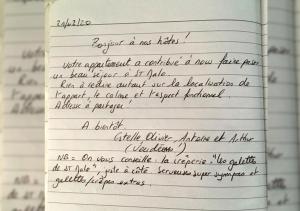 21/02/20
Bonjour à nos hôtes!
Votre appartement a contribué à nous faire passer
un beau séjour à St Malo.
Rien à redire autant sur la localisation de
l'appart, le calme et l'aspect fonctionnel.
Adresse à partager!
A bientôt
Estelle, Olivier, Antoine et Arthur
NB = On vous conseille la crêperie "les galettes
de St Malo", juste à côté. Serveuses super sympas et
galettes/crêpes extras.